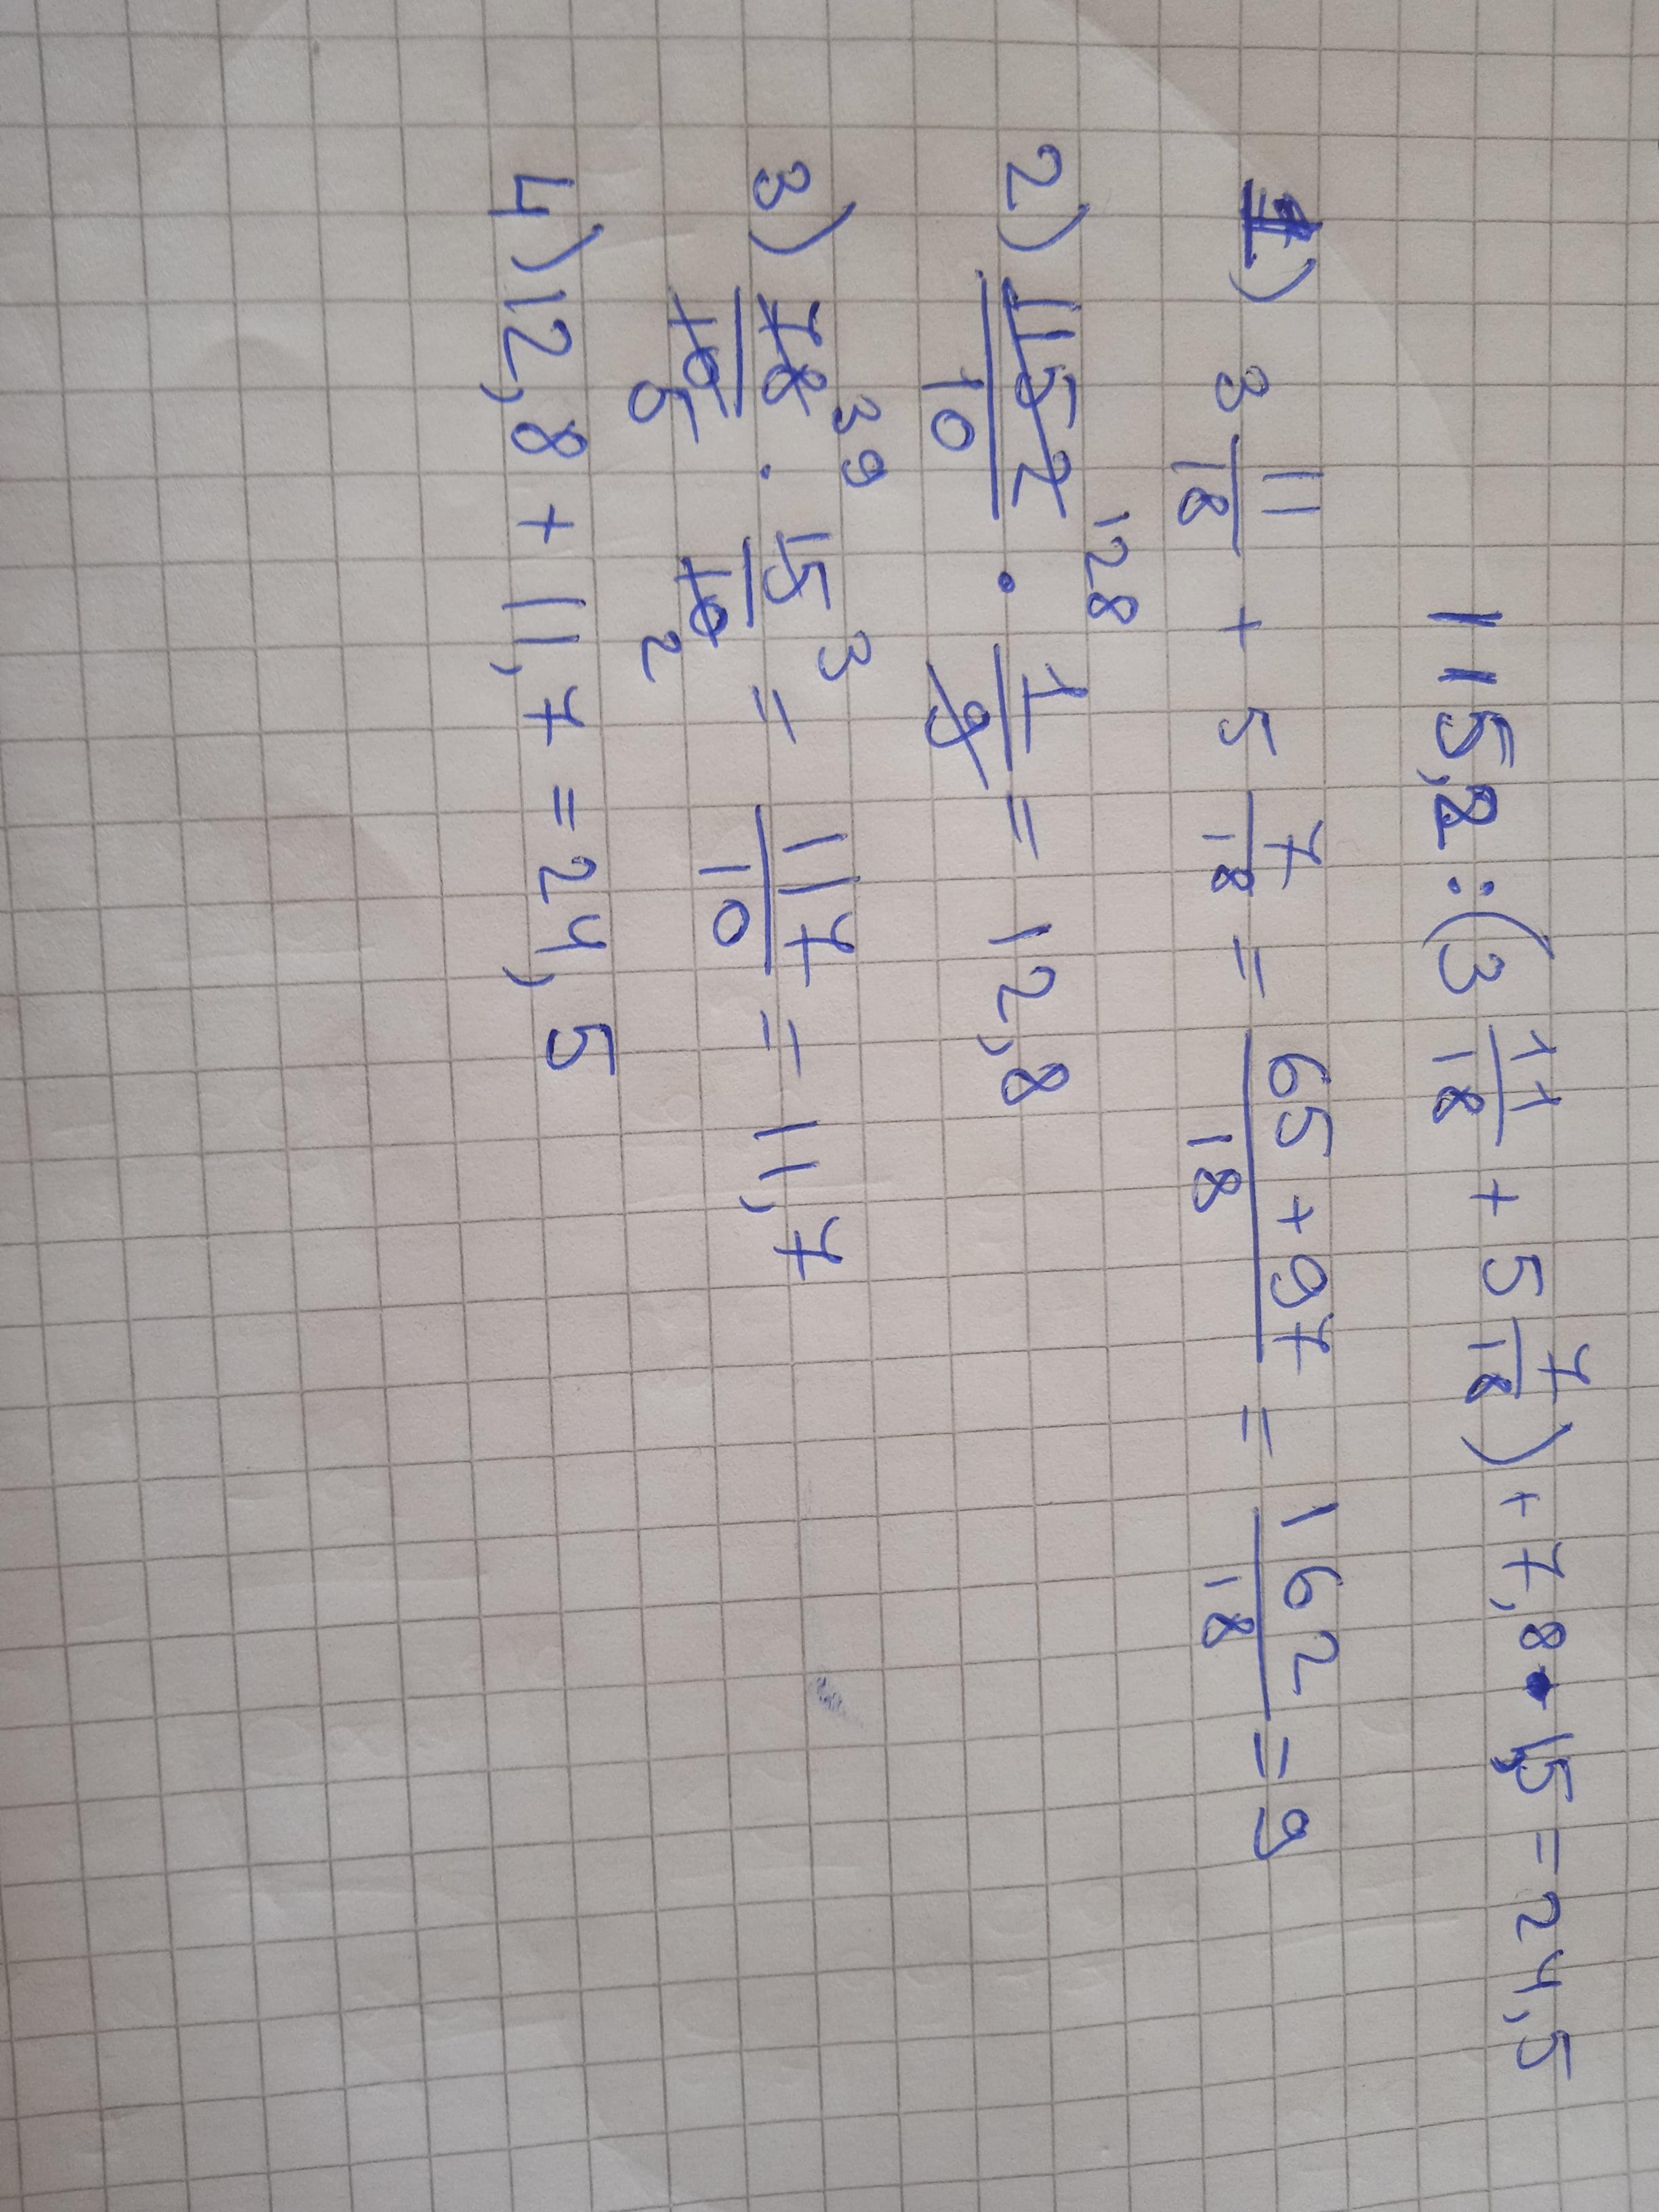 115,2 : (3 11/18 + 5 7/18) + 7,8 • 1,5 = 24,5
1) 3 11/18 + 5 7/18 = 65 + 97/18 = 162/18 = 9
128
2) 1152/10 · 1/9 = 12,8
39 3
3) 78/10 · 15/10 = 117/10 = 11,7
5 2
4) 12,8 + 11,7 = 24,5